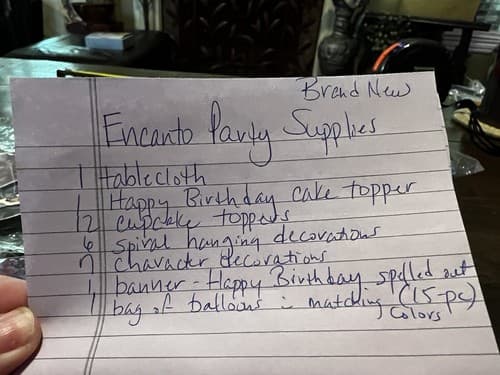 Brand New
Encanto Party Supplies
1 tablecloth
1 Happy Birthday cake topper
12 cupcake toppers
6 spiral hanging decorations
7 character decorations
1 banner - Happy Birthday spelled out
1 bag of balloons in matching (15-pc)
colors